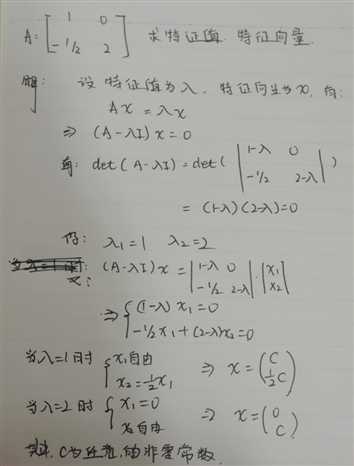 A = [ 1 0 ; -1/2 2 ] 求特征值. 特征向量.
解: 设特征值为λ, 特征向量为x, 有:
Ax = λx
⇒ (A-λI)x = 0
有: det(A-λI) = det( | 1-λ 0 ; -1/2 2-λ | )
= (1-λ)(2-λ)=0
得: λ₁=1 λ₂=2
又: (A-λI)x = | 1-λ 0 ; -1/2 2-λ | · | x₁ ; x₂ |
⇒ { (1-λ)x₁=0
-1/2x₁+(2-λ)x₂=0
当λ=1时 { x₁自由 ; x₂=½x₁ ⇒ x = ( C ; ½C )
当λ=2时 { x₁=0 ; x₂自由 ⇒ x = ( 0 ; C )
其中, C为任意的非零常数.